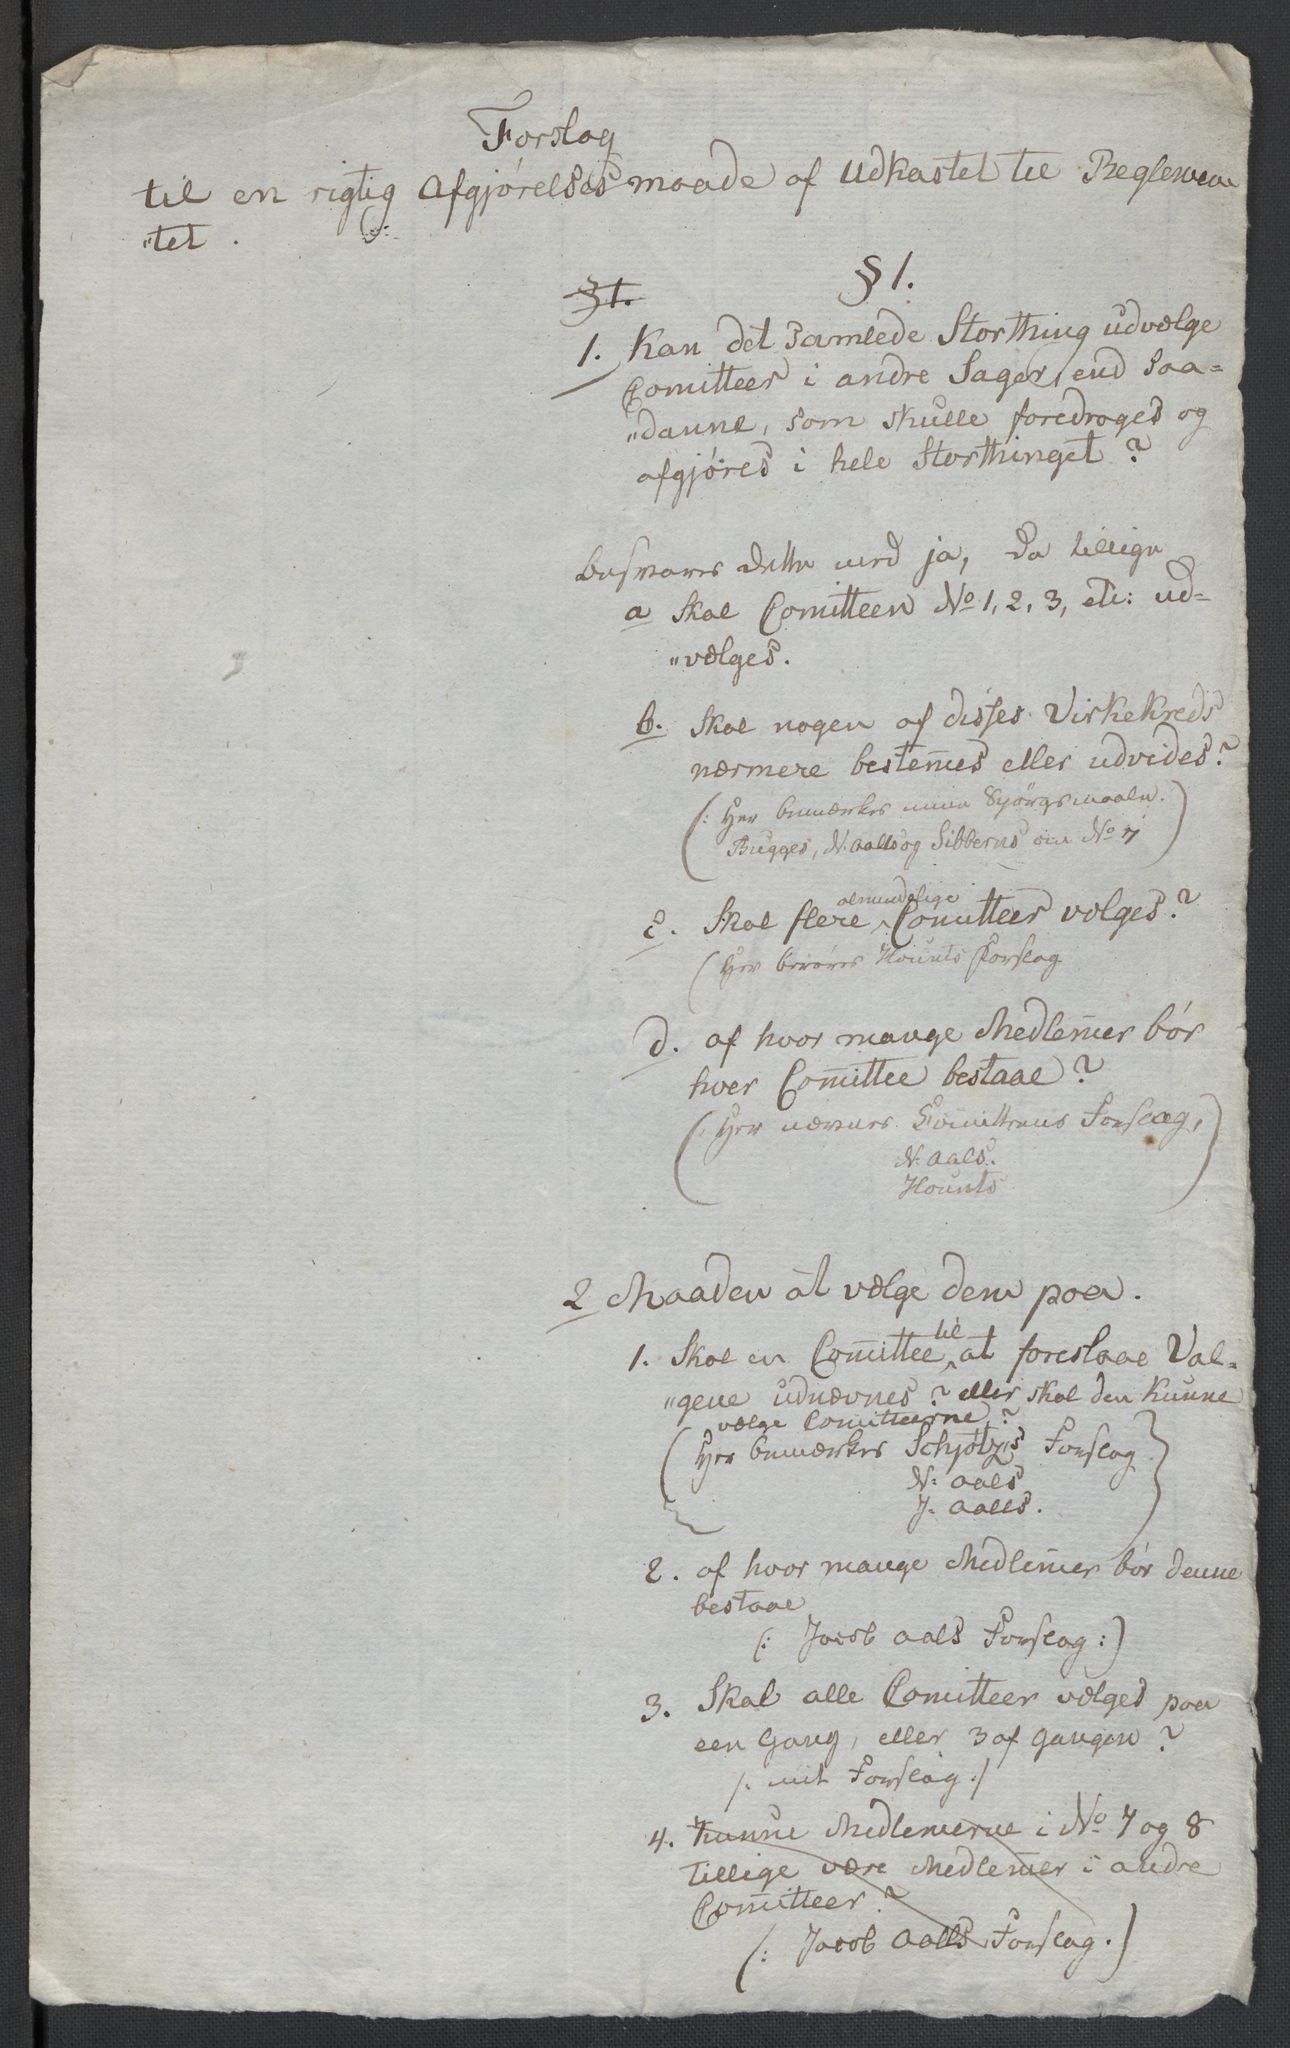 Forslag
til en rigtig Afgjørelsesmaade af Udkastet til Reglemen
"tet.
§ 1.
§ 1.
1. Kan det samlede Storthing udvælge
Comitteer i andre Sager, end saa=
"danne, som skulle foredrages og
afgjøres i hele Storthinget?
Besvares dette med ja, da tillige
a Skal Comitteen No 1, 2, 3, etc: ud=
"vælges.
b. Skal nogen af disses Virkekreds
nærmere bestem̄es eller udvides?
(: Her bemærkes mine Spörgsmaale.
Bugges, N. Aalls og Sibberns om No 7)
c. Skal flere almindelige Comitteer vælges?
(Her berøres Hounts Forslag
d. af hvor mange Medlem̄er bør
hver Com̄ittee bestaae?
(: Her nævnes Com̄itteens Forslag,)
N. Aals.
Hounts
2 Maaden at vælge dem paa.
1. Skal en Com̄ittee til at foreslaae Val=
"gene udnævnes? eller skal den kunne
vælge Comitteerne?
(Her bemærkes Schjøtzs Forslag
N: Aals
J. Aalls.
2. af hvor mange Medlem̄er bør denne
bestaae
(: Jacob Aals Forslag :)
3. Skal alle Comitteer vælges paa
een Gang, eller 3 af Gangen?
/: mit Forslag :/
4. Kunne Medlemerne i No 7 og 8
tillige være Medlem̄er i andre
Com̄itteer?
(: Jacob Aalls Forslag.)